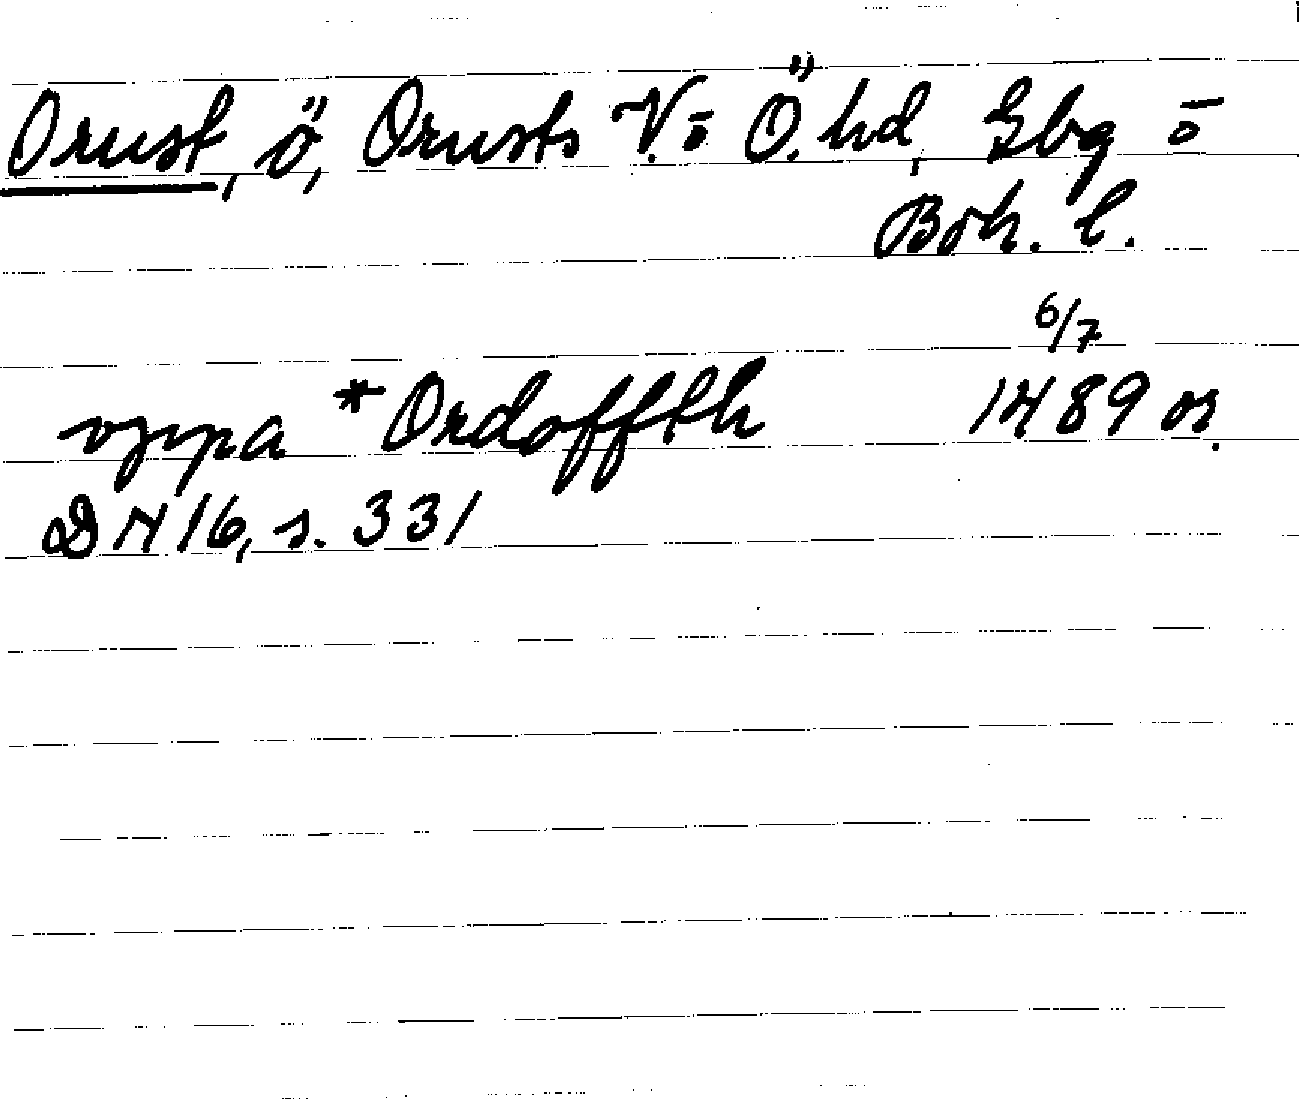 Orust, ö, Orusts V. o Ö. hd, Gbg o
Boh. l.
6/7
vppa *Ordoffth 1489 or.
DN 16, s. 331